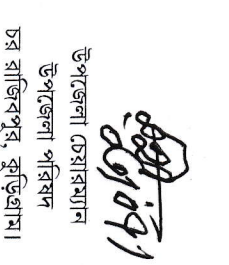 উপজেলা চেয়ারম্যান
উপজেলা পরিষদ
চর রাজিবপুর, কুড়িগ্রাম।